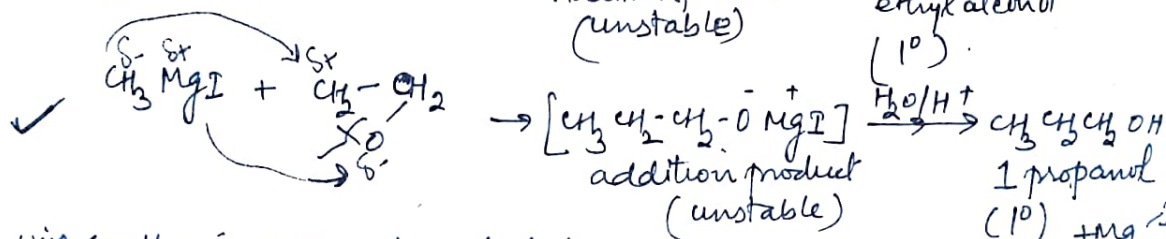 (unstable)
ethyl alcohol
(1°).
δ- δ+ δ+
CH₃ MgI + CH₂ - CH₂
O
δ-
→ [CH₃ CH₂-CH₂-O⁻ Mg⁺I] H₂O/H⁺ → CH₃ CH₂CH₂ OH
addition product
(unstable)
1 propanol
(1°) +Mg